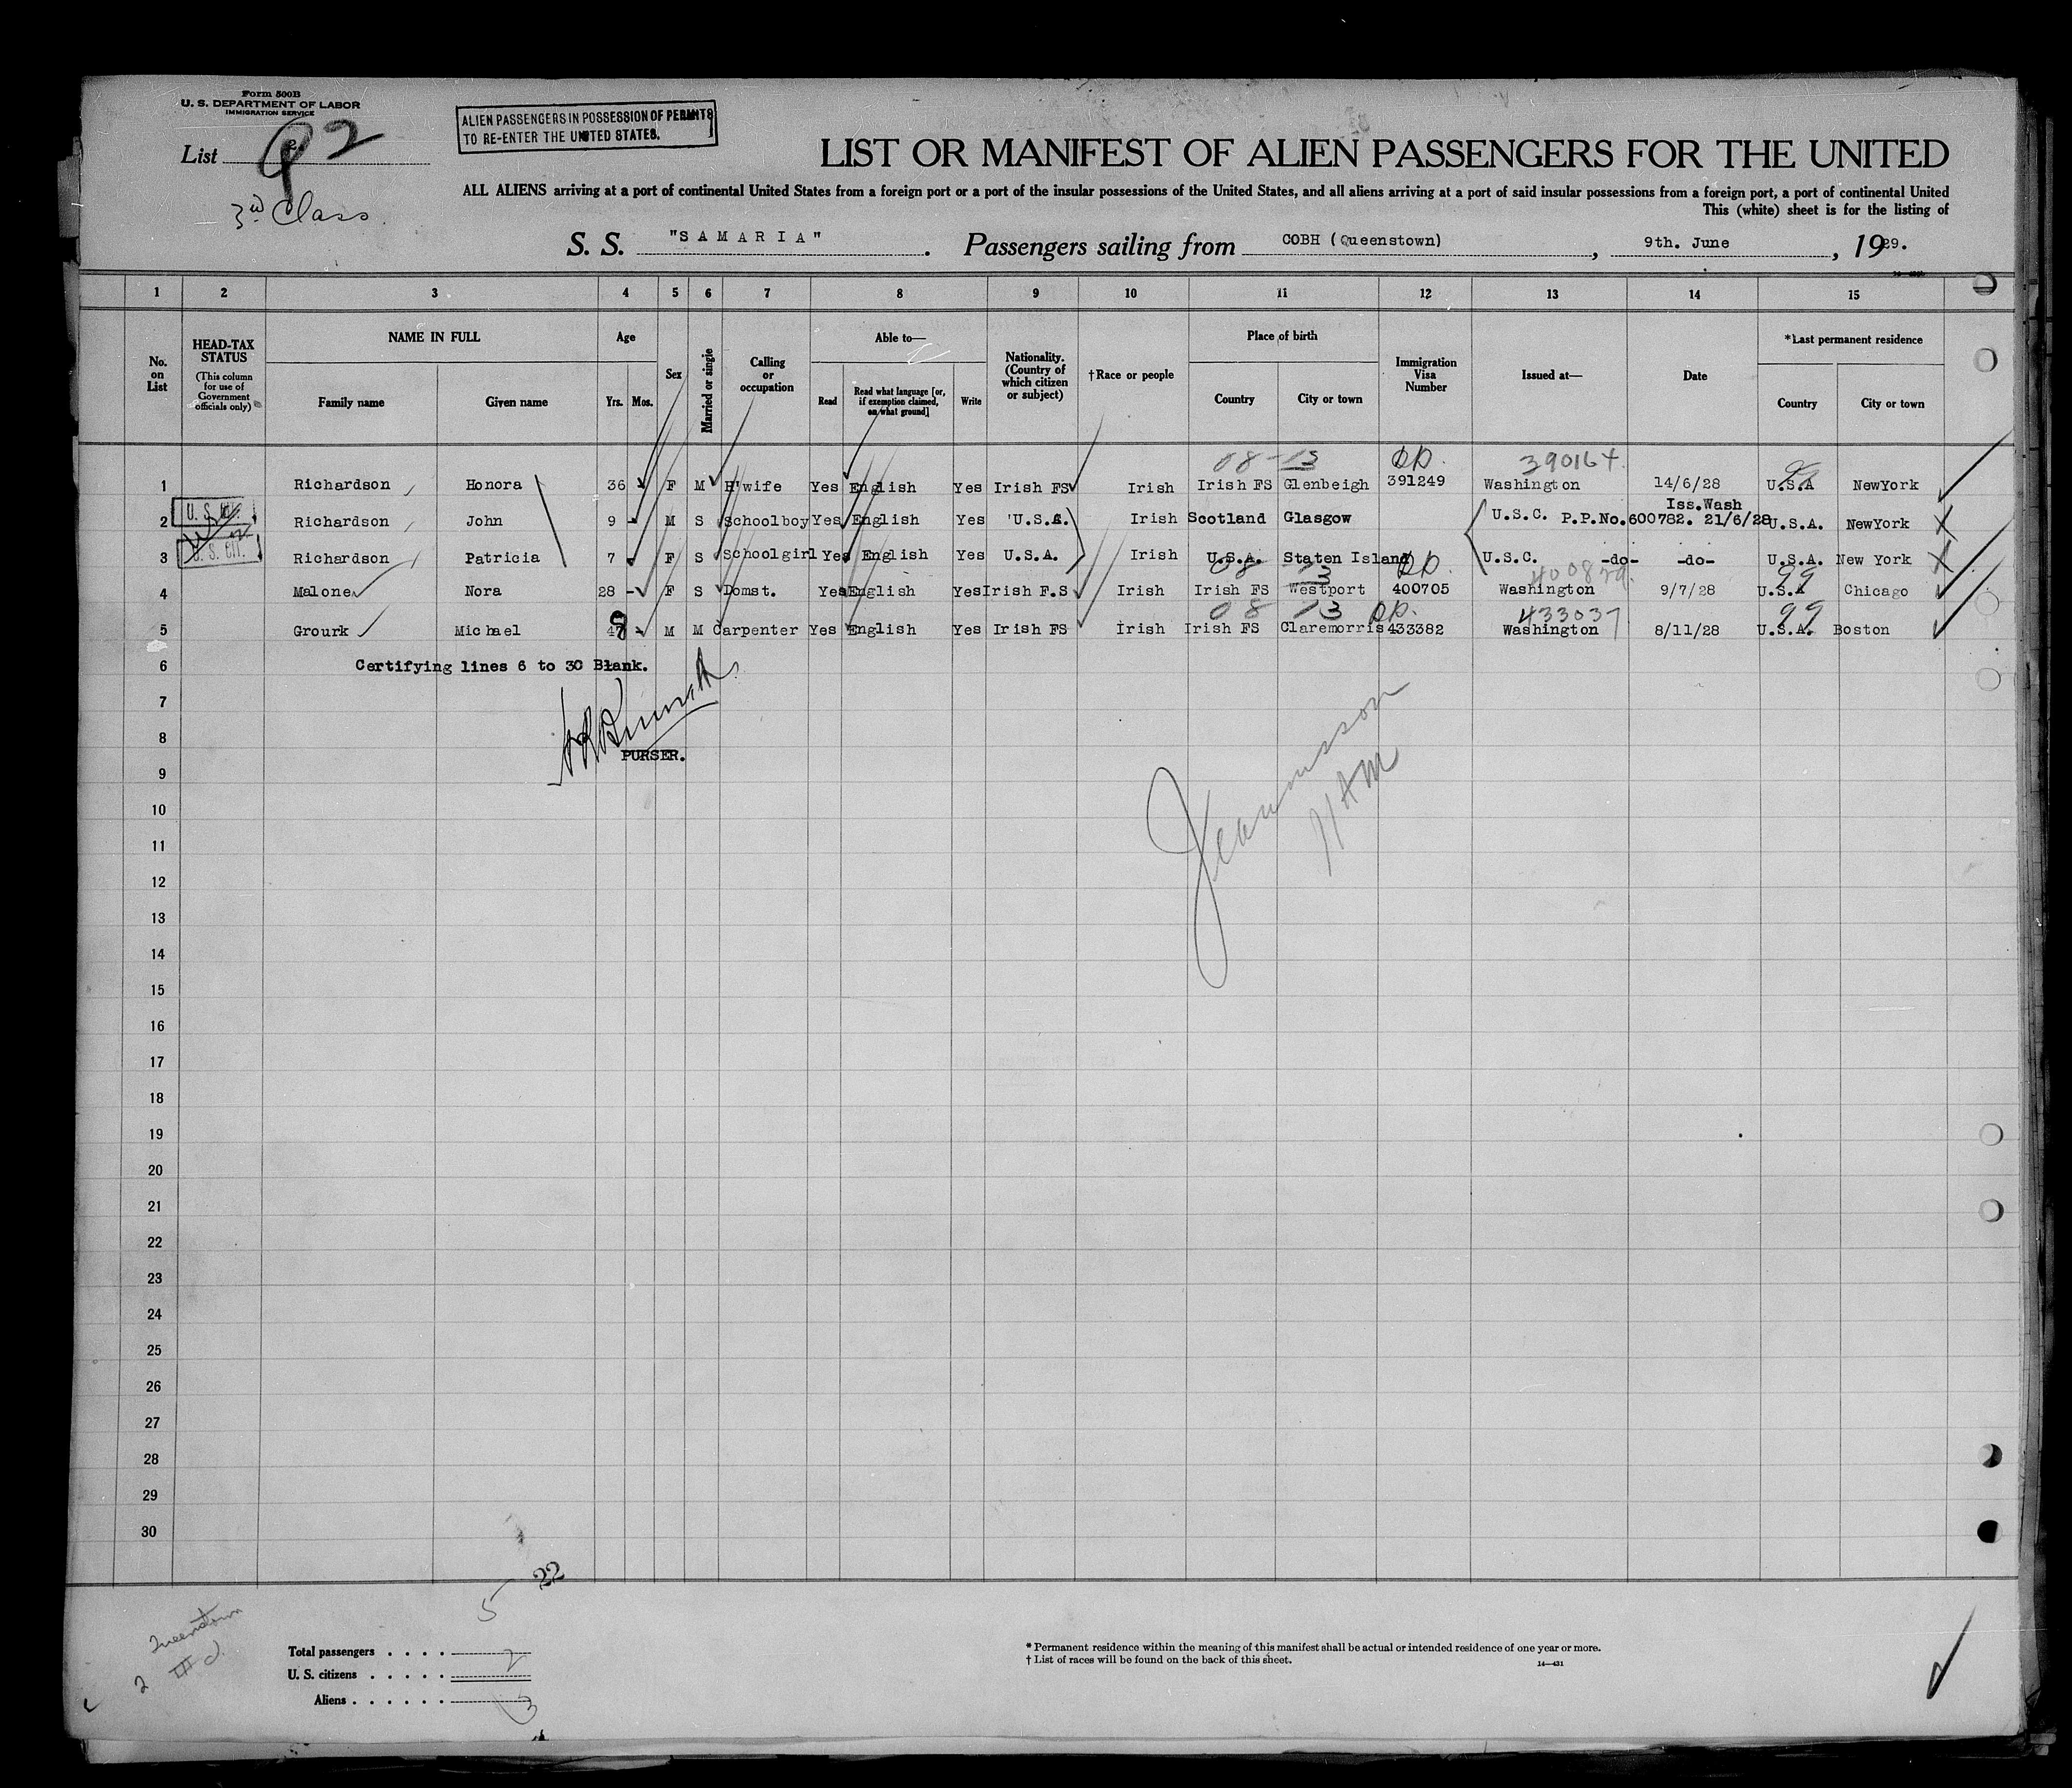 Form 500B
U. S. DEPARTMENT OF LABOR
IMMIGRATION SERVICE
ALIEN PASSENGERS IN POSSESSION OF PERMITS
TO RE-ENTER THE UNITED STATES.
List 2. 92
3rd Class.
LIST OR MANIFEST OF ALIEN PASSENGERS FOR THE UNITED
ALL ALIENS arriving at a port of continental United States from a foreign port or a port of the insular possessions of the United States, and all aliens arriving at a port of said insular possessions from a foreign port, a port of continental United
This (white) sheet is for the listing of
S. S. "SAMARIA". Passengers sailing from COBH (Queenstown), 9th. June, 1929.
1 2 3 4 5 6 7 8 9 10 11 12 13 14 15
No. on List
HEAD-TAX STATUS (This column for use of Government officials only)
NAME IN FULL
Family name Given name
Age
Yrs. Mos.
Sex
Married or single
Calling or occupation
Able to—
Read Read what language [or, if exemption claimed, on what ground] Write
Nationality. (Country of which citizen or subject)
†Race or people
Place of birth
Country City or town
Immigration Visa Number
Issued at—
Date
*Last permanent residence
Country City or town
08-13 390164 99
1 Richardson Honora 36 F M H'wife Yes English Yes Irish FS Irish Irish FS Glenbeigh 391249 Washington 14/6/28 U.S.A NewYork
Iss.Wash
2 U.S. CIT. Richardson John 9 - M S Schoolboy Yes English Yes U.S.A. Irish Scotland Glasgow U.S.C. P.P.No.600782. 21/6/28 U.S.A. NewYork
3 U.S. CIT. Richardson Patricia 7 F S Schoolgirl Yes English Yes U.S.A. Irish U.S.A. Staten Island U.S.C. -do- -do- U.S.A. New York
08 13 99
4 Malone Nora 28 - F S Domst. Yes English Yes Irish F.S Irish Irish FS Westport 400705 Washington 9/7/28 U.S.A Chicago
08 13 433037 99
5 Grourk Michael 48 - M M Carpenter Yes English Yes Irish FS Irish Irish FS Claremorris 433382 Washington 8/11/28 U.S.A. Boston
6 Certifying lines 6 to 30 Blank.
7
8
PURSER.
9
10
11 AM
11
12
13
14
15
16
17
18
19
20
21
22
23
24
25
26
27
28
29
30
22
5
Queenstown
2 III d.
Total passengers . . . .
U. S. citizens . . . . . 2
Aliens . . . . . . 3
* Permanent residence within the meaning of this manifest shall be actual or intended residence of one year or more.
† List of races will be found on the back of this sheet.
14—431